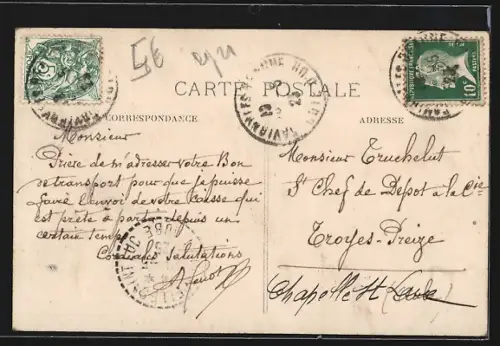 5€
CARTE POSTALE
CORRESPONDANCE
ADRESSE
Monsieur
Prière de m'adresser votre Bon
de transport pour que je puisse
faire l'envoi de votre caisse qui
est prête à partir depuis un
certain temps
Cordiales Salutations
Monsieur Truchelut
St Chef de Depot à la Cie
Troyes-Preize
Chapelle St Luc